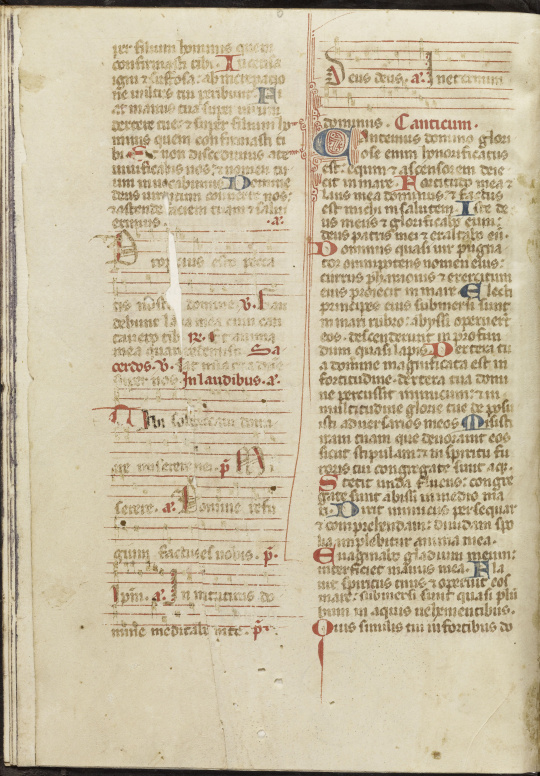 per filium hominis quem
confirmasti tibi. Incensa
igni & suffosa: ab increpatio
ne vultus tui peribunt. Fi
at manus tua super virum
dextere tue: & super filium ho
minis quem confirmasti ti
bi. Et non discedimus a te
vivificabis nos: & nomen tu
um invocabimus. Domine
deus virtutum converte nos:
& ostende faciem tuam & salvi
erimus. a.
Propicius esto pecca
tis nostris domine. V. Gau
debunt labia mea cum can
tavero tibi. R. Et anima
mea quam redemisti. Sa
cerdos. V.
In laudibus. a.
Tibi soli peccavi domi
ne miserere mei. p. Mi
serere. a. Domine refu
gium factus es nobis. p.
Ipm. a. In matutinis do
mine meditabor in te. p.
Deus deus. a. In eternum
dominus. Canticum.
Cantemus domino glori
ose enim honorificatus
est: equum & ascensorem deie
cit in mare. Fortitudo mea &
laus mea dominus: & factus
est michi in salutem. Iste de
us meus & glorificabo eum:
deus patris mei & exaltabo eum.
Dominus quasi vir pugna
tor omnipotens nomen eius:
currus pharaonis & exercitum
eius proiecit in mare. Electi
principes eius submersi sunt
in mari rubro: abyssi operuerunt
eos. descenderunt in profun
dum quasi lapis. Dextera tu
a domine magnificata est in
fortitudine: dextera tua domi
ne percussit inimicum: & in
multitudine glorie tue deposu
isti adversarios meos. Misisti
iram tuam que devoravit eos
sicut stipulam: & in spiritu fu
roris tui congregate sunt aque.
Stetit unda fluens: congre
gate sunt abyssi in medio ma
ri. Dixit inimicus persequar
& comprehendam: dividam spo
lia implebitur anima mea.
Evaginabo gladium meum:
interficiet manus mea. Fla
vit spiritus tuus & operuit eos
mare: submersi sunt quasi plum
bum in aquis vehementibus.
Quis similis tui in fortibus do